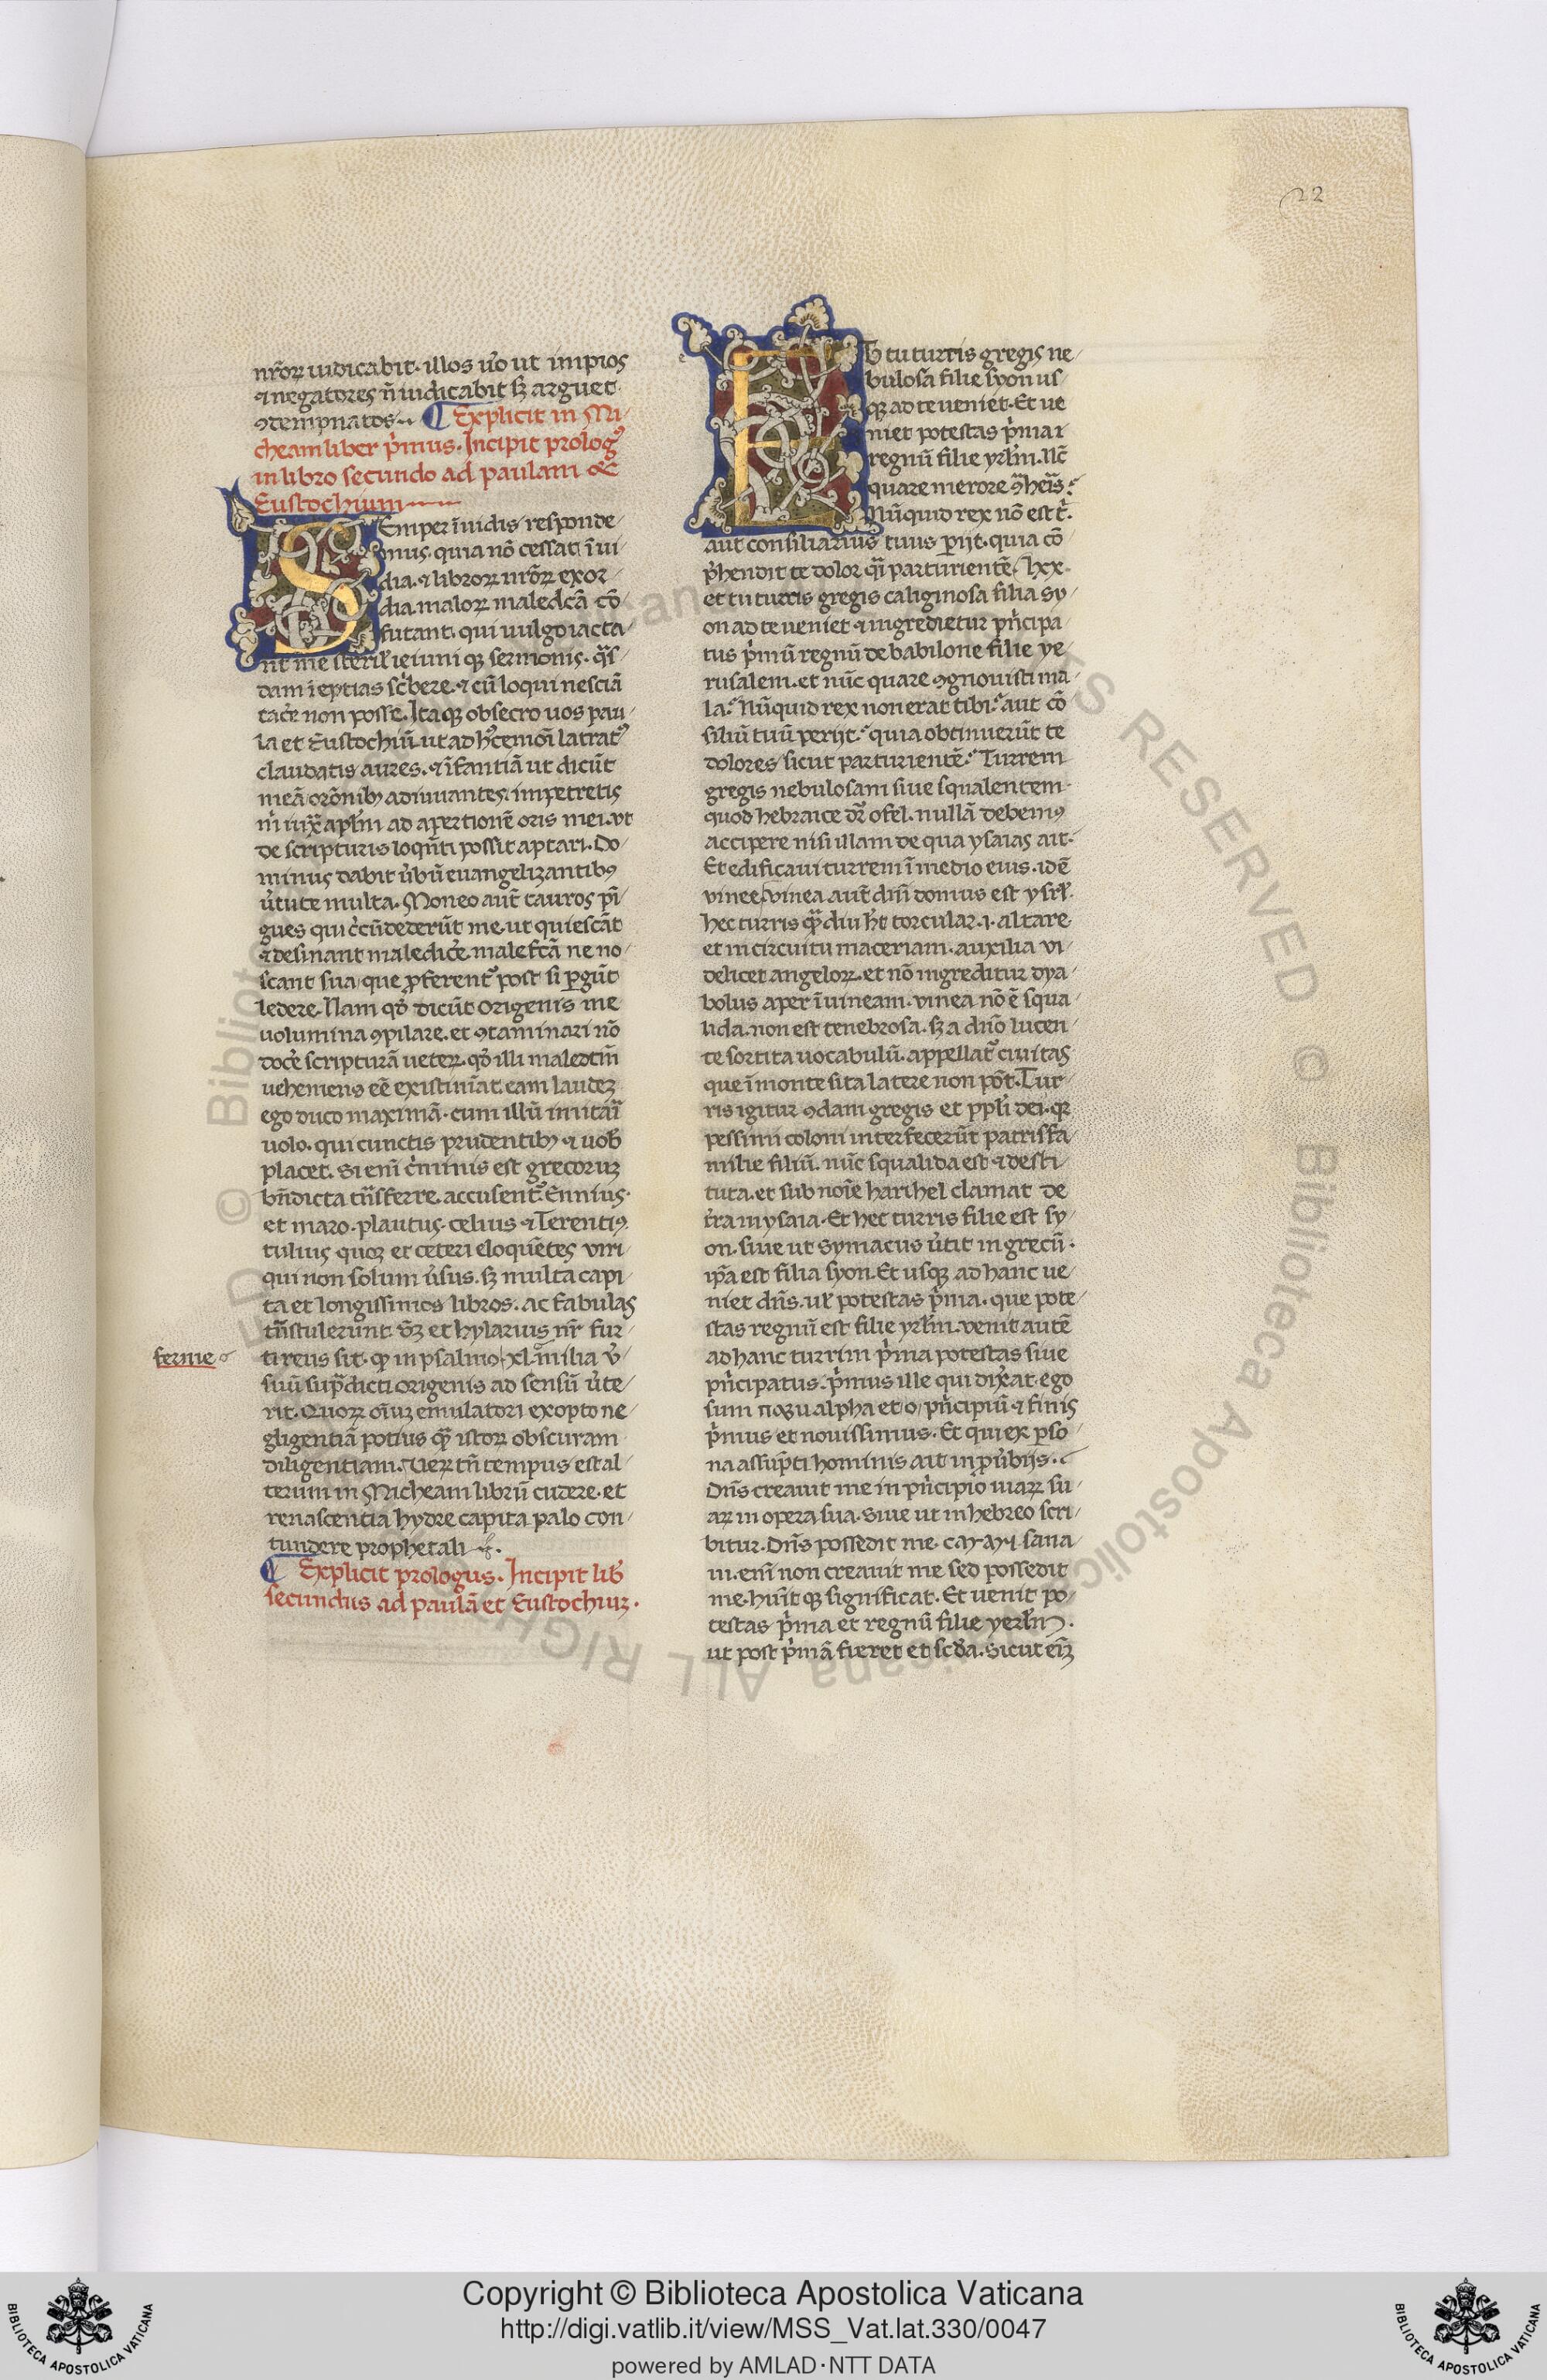 22
nr̃oꝝ iudicabit. illos ũo ut impios
⁊ negatores ñ iudicabit sꝫ arguet
ꝯtempnatos. ¶ Explicit in Mi
cheam liber p̾mus. Incipit prologꝰ
in libro secundo ad paulam &
Eustochium
SEmper ĩuidis responde
mus. quia nõ cessat ĩui
dia. ⁊ libroꝝ nr̃oꝝ exor
dia. maloꝝ maledc̃a cõ
futant. qui uulgo iacta
nt me steril̃ ieiuni qꝫ sermonis. q̃s
dam ĩeptias sc̾bere. ⁊ cũ loqui nesciã
tac̾e non posse. Itaqꝫ obsecro uos pau
la et Eustochiũ. ut ad hꝰcemõi latratꝰ
claudatis aures. ⁊ ĩfantiã ut dicũt
meã or̃onibꝫ adiuuantes. impetretis
m̾ iux̃ apl̃m ad apertionẽ oris mei. ut
de scripturis loqñti possit aptari. Do
minus dabit ũbũ euangelizantibꝰ
ũtute multa. Moneo aut̃ tauros pĩ
gues qui c̾cũdederũt me. ut quiescãt
⁊ desinant maledic̾e. malefc̃a ne no
scant sua. que ꝓferentꝰ post si ꝑgũt
ledere. Nam qđ dicũt Origenis me
uolumina ꝯpilare. et ꝯtaminari nõ
doc̾e scripturã ueteꝝ. qđ illi maledctm̃
uehemens eẽ existimãt. eam laudeꝫ
ego duco maximã. cum illũ imitari
uolo. qui cunctis prudentibꝫ ⁊ uob̃
placet. Si enĩ c̾minis est grecoruꝫ
bñdicta trãsferre. accusentꝰ Ennius.
et maro. plautus. celius ⁊ Terentiꝰ.
tulius quoqꝫ et ceteri eloquẽtes viri
qui non solum ũsus. sꝫ multa capi
ta et longissimos libros. ac fabulas
trãstulerunt. Sꝫ et hylarius nr̃ fur
ti reus sit. ꝙ in psalmos xl. milia ũ
ferme
suũ sup̃dicti origenis ad sensũ ũte
rit. Quoꝝ oĩuꝫ emulatori exopto ne
gligentiã potius q̃ istoꝝ obscuram
diligentiam. Ueꝝ tñ tempus est al
terum in Micheam librũ cudere. et
renascentia hydre capita palo con
tundere prophetali.
¶ Explicit prologus. Incipit lib̾
secundus ad paulã et Eustochiuꝫ.
ET tu turris gregis ne
bulosa filie syon us
qꝫ ad te ueniet. Et ue
niet potestas p̾ma ⁊
regnũ filie yrl̃m. Nc̃
quare merore ꝯ̃heris?
Nũquid rex nõ est t̾.
aut consiliarius tuus ꝑijt. quia cõ
p̾hendit te dolor q̃i parturientẽ. lxx.
et tu turris gregis caliginosa filia sy
on ad te ueniet ⁊ ingredietur pñcipa
tus p̾mũ regnũ de babilone filie ye
rusalem. et nũc quare ꝯgnouisti ma
la? Nũquid rex non erat tibi? aut cõ
siliũ tuũ perijt? quia obtinuerũt te
dolores sicut parturientẽ? Turrem
gregis nebulosam siue squalentem
quod hebraice dr̃ ofel. nullã debemꝰ
accipere nisi illam de qua ysaias ait.
Et edificaui turrem ĩ medio eius. idẽ
vinee. vinea aut̃ dñi domus est ysrl̃.
hec turris q̃ diu ht̃ torcular .i. altare
et in circuitu maceriam. auxilia vi
delicet angeloꝝ. et nõ ingreditur dya
bolus aper ĩ uineam. vinea nõ ẽ squa
lida. non est tenebrosa. sꝫ a dño lucen
te sortita uocabulũ. appellatꝰ ciuitas
que ĩ monte sita latere non põt. Tur
ris igitur ꝯdam gregis et ppl̃i dei. qꝫ
pessimi coloni interfecerũt patrisfa
milie filiũ. nũc squalida est ⁊ desti
tuta. et sub noĩe harihel clamat de
t̾ra in ysaia. Et hec turris filie est sy
on. siue ut Symacus ũtit in grecũ.
ip̃a est filia syon. Et usqꝫ ad hanc ue
niet dñs. ul̃ potestas p̾ma. que pote
stas regnũ est filie yrl̃m. venit autẽ
ad hanc turrim p̾ma potestas siue
pñcipatus. p̾mus ille qui dix̾at. ego
sum alpha et o. pñcipiũ ⁊ finis
p̾mus et nouissimus. Et qui ex ꝑso
na assũpti hominis ait in ꝓũbijs.
Dñs creauit me in pñcipio uiaꝝ su
aꝝ in opera sua. Siue ut in hebreo scri
bitur. Dñs possedit me. canani sana
ui. enĩ non creauit me sed possedit
me. hũit qꝫ significat. Et uenit po
testas p̾ma et regnũ filie yerl̃m.
ut post p̾mã fieret et scđa. Sicut eĩꝫ
Copyright © Biblioteca Apostolica Vaticana
http://digi.vatlib.it/view/MSS_Vat.lat.330/0047
powered by AMLAD·NTT DATA
BIBLIOTECA APOSTOLICA VATICANA
BIBLIOTECA APOSTOLICA VATICANA